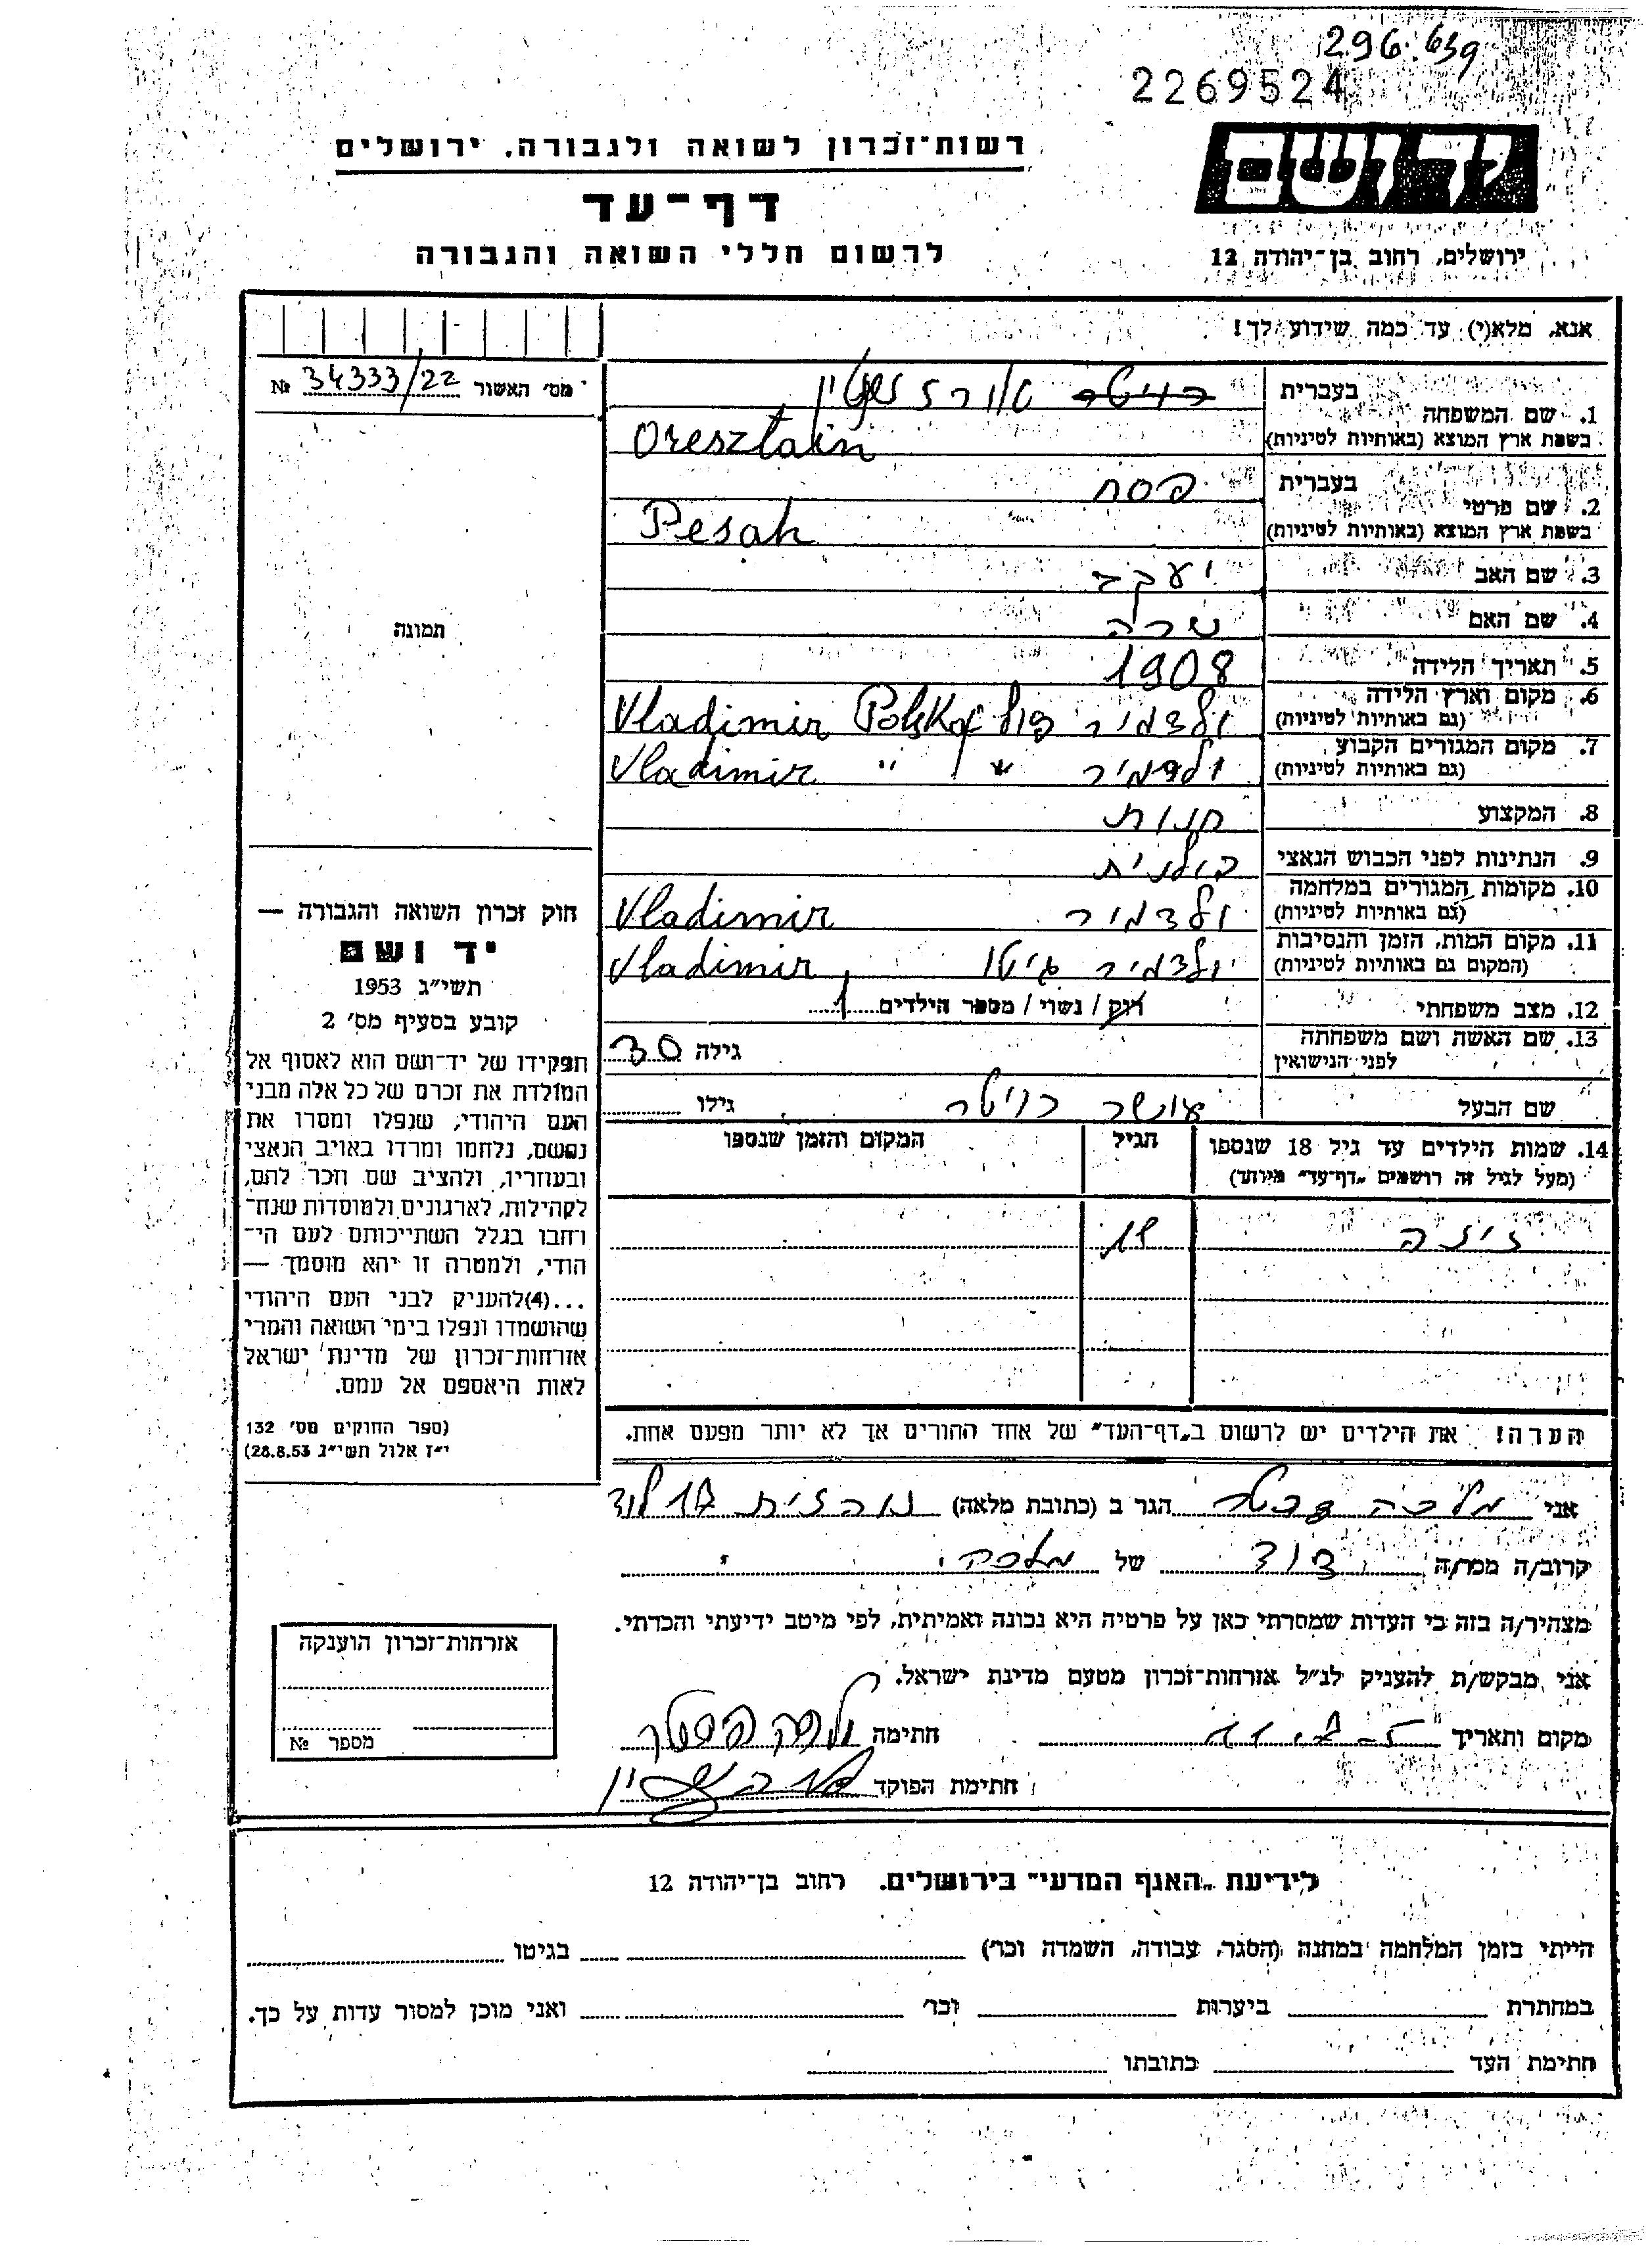 296.639
2269524
יד ושם
ירושלים, רחוב בן־יהודה 12
רשות־זכרון לשואה ולגבורה, ירושלים
דף־עד
לרשום חללי השואה והגבורה
אנא, מלא(י) עד כמה שידוע לך!
מס׳ האשור 34333/22 №
תמונה
1. שם המשפחה
בעברית
בשפת ארץ המוצא (באותיות לטיניות) Oresztain
2. שם פרטי
בעברית פסח
בשפת ארץ המוצא (באותיות לטיניות) Pesah
3. שם האב יעקב
4. שם האם שרה
5. תאריך הלידה 1908
6. מקום וארץ הלידה ולדמיר פולין Vladimir Polska
(גם באותיות לטיניות)
7. מקום המגורים הקבוע ולדמיר " " Vladimir
(גם באותיות לטיניות)
8. המקצוע חנות
9. הנתינות לפני הכבוש הנאצי פולנית
10. מקומות המגורים במלחמה ולדמיר Vladimir
(גם באותיות לטיניות)
11. מקום המות, הזמן והנסיבות ולדמיר גיטו Vladimir
(המקום גם באותיות לטיניות)
12. מצב משפחתי רוק / נשוי / מספר הילדים 1
13. שם האשה ושם משפחתה
לפני הנישואין
גילה 30
שם הבעל גילו
14. שמות הילדים עד גיל 18 שנספו
(מעל לגיל זה רושמים „דף־עד" מיוחד)
הגיל
המקום והזמן שנספו
הערה! את הילדים יש לרשום ב„דף־העד" של אחד ההורים אך לא יותר מפעם אחת.
אני מלכה הגר ב (כתובת מלאה) לוד
קרוב/ה מכר/ה דוד של
מצהיר/ה בזה כי העדות שמסרתי כאן על פרטיה היא נכונה ואמיתית, לפי מיטב ידיעתי והכרתי.
אני מבקש/ת להעניק לנ״ל אזרחות־זכרון מטעם מדינת ישראל.
מקום ותאריך חתימה
חתימת הפוקד
חוק זכרון השואה והגבורה —
יד ושם
תשי״ג 1953
קובע בסעיף מס׳ 2
תפקידו של יד־ושם הוא לאסוף אל
המולדת את זכרם של כל אלה מבני
העם היהודי, שנפלו ומסרו את
נפשם, נלחמו ומרדו באויב הנאצי
ובעוזריו, ולהציב שם וזכר להם,
לקהילות, לארגונים ולמוסדות שנח־
רחבו בגלל השתייכותם לעם הי־
הודי, ולמטרה זו יהא מוסמך —
...(4)להעניק לבני העם היהודי
שהושמדו ונפלו בימי השואה והמרי
אזרחות־זכרון של מדינת ישראל
לאות היאספם אל עמם.
(ספר החוקים מס׳ 132
י״ז אלול תשי״ג 28.8.53)
אזרחות־זכרון הוענקה
מספר №
לידיעת „האגף המדעי" בירושלים. רחוב בן־יהודה 12
הייתי בזמן המלחמה במחנה (הסגר, עבודה, השמדה וכר) בגיטו
במחתרת ביערות וכר ואני מוכן למסור עדות על כך.
חתימת העד כתובתו